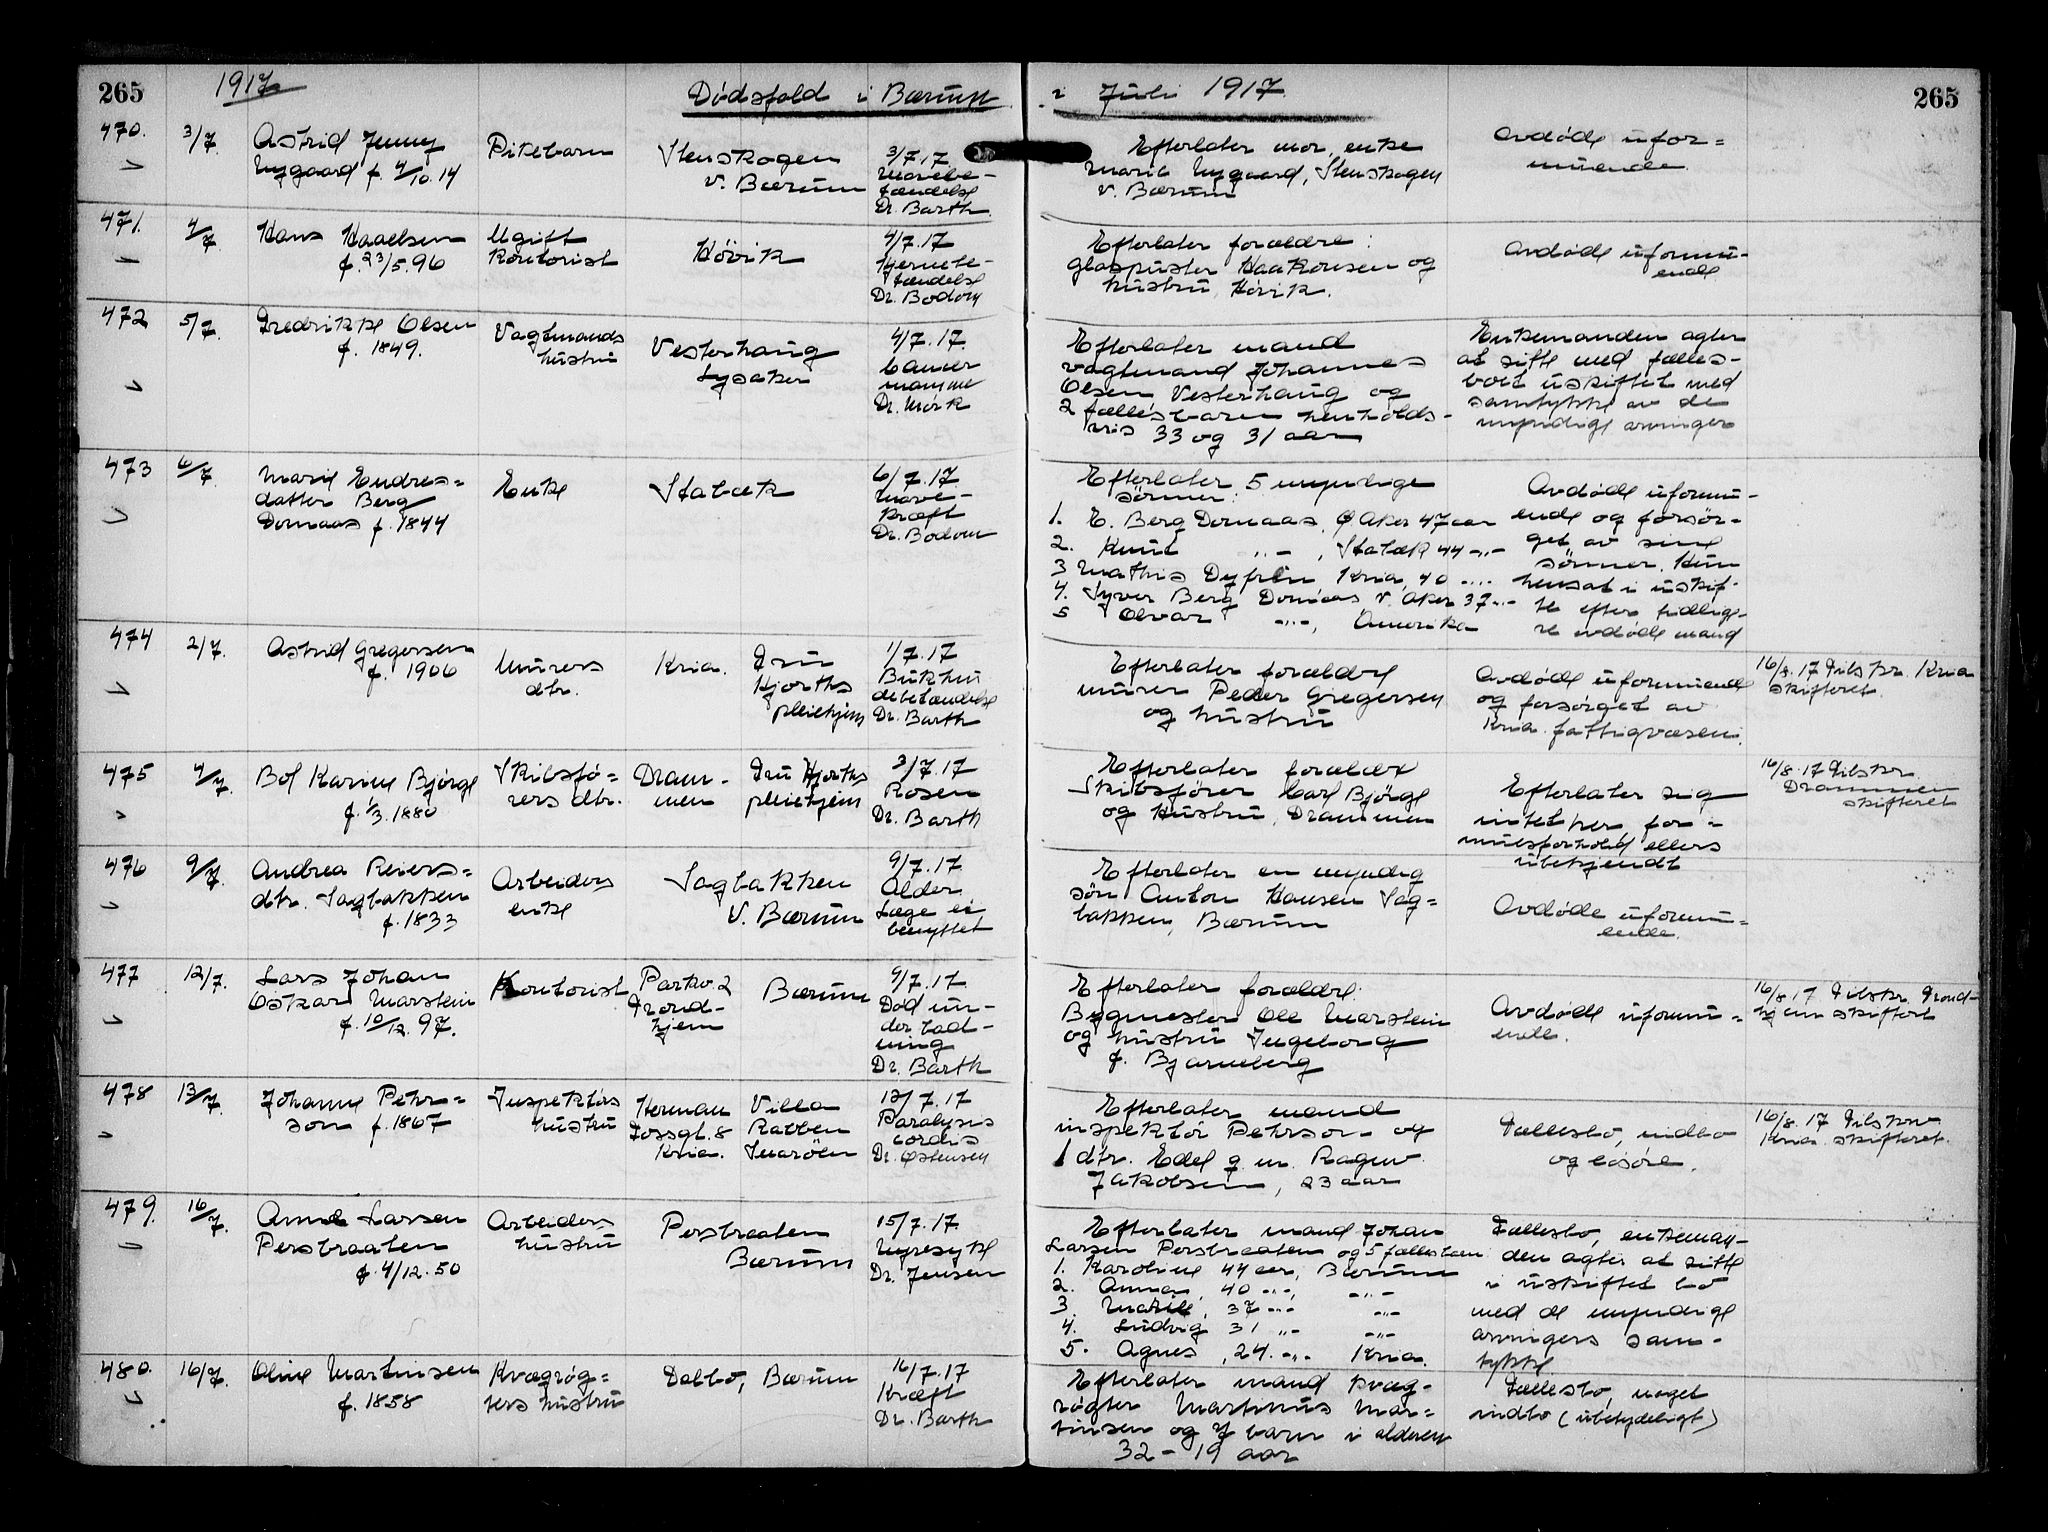 265
1917
Dødsfald i Bærum
i Juli 1917.
265
470.
3/7.
Astrid Jenny
Nygaard f. 4/10.14
Pikebarn
Stenskogen
V. Bærum
3/7.17
Mavebe-
tændelse
Dr. Barth.
Efterlater mor, enke
Marie Nygaard, Stenskogen
V. Bærum
Avdøde ufor=
muende.
471.
4/7.
Hans Haaelsen
f. 23/5.96
Ugift
kontorist
Høvik
4/7.17
Hjernebe-
tændelse
Dr. Bodom
Efterlater forældre:
glaspuster Haakonsen og
hustru, Høvik.
Avdøde uformu-
ende
472
5/7.
Fredrikke Olsen
f. 1849.
Vagtmands
hustru
Vesterhaug
Lysaker
4/7.17.
Cancer
mamme
Dr. Mörk
Efterlater mand
vagtmand Johannes
Olsen Vesterhaug og
2 fællesbarn henholds-
vis 33 og 31 aar
Enkemanden agter
at sitte med fælles-
boet uskiftet med
samtykke av de
myndige arvinger
473
6/7.
Marie Endres=
datter Berg
Domaas f. 1844
Enke
Stabæk
6/7.17
Mave-
kræft
Dr. Bodom
Efterlater 5 myndige
sønner:
1. E. Berg Domaas, Ø. Aker 47 aar
2. Knut " - , Stabæk 44 -"-
3 Mathis Dyfrin Kria, 40 -"-
4. Syver Berg Domaas V. Aker 37 -"-
5 Olvar -"-, Amerika
Avdøde uformu-
ende og forsør-
get av sine
sønner. Hun
hensat i uskif-
te efter tidlige-
re avdøde mand
474
2/7.
Astrid Gregersen
f. 1906
Murers
dtr.
Kria.
Fru
Hjorths
pleiehjem
1/7.17
Bukhin
debetændelse
Dr. Barth
Efterlater forældre
murer Peder Gregersen
og hustru
Avdøde uformuende
og forsørget av
Kria. fattigvæsen.
16/8.17 Tilskr. Kria
skifteret.
475
4/7.
Bol Karine Bjørge
f. 1/3.1880
Skibsfø=
rers dtr.
Dram-
men
Fru Hjorths
pleiehjem
3/7.17
Rosen
Dr. Barth
Efterlater forældre
Skibsfører Carl Bjørge
og Hustru, Drammen
Efterlater sig
intet her for-
muesforhold ellers
ubekjendt
16/8.17 Tilskr.
Drammen
skifteret
476
9/7.
Andrea Reiers=
dtr. Sagbakken
f. 1833
Arbeiders
enke
Sagbakken
V. Bærum
9/7.17
Alder
Læge ei
benyttet
Efterlater en myndig
søn Anton Hansen Sag=
bakken, Bærum
Avdøde uformu=
ende.
477
12/7.
Lars Johan
Oskar Marstein
f. 10/12.97.
Kontorist
Parkv. 2
Trond-
hjem
Bærum
9/7.17
Død un-
der bad-
ning
Dr. Barth
Efterlater forældre:
Bygmester Ole Marstein
og hustru Ingeborg
f. Bjarneberg
Avdøde uformu=
ende.
16/8.17 Tilskr. Trond-
hjem skifteret
478
13/7.
Johanne Pehr=
son f. 1867
Inspektørs
hustru
Herman
Fossgt. 8
Kria.
Villa
Rabben
Snarøen
12/7.17
Paralysis
cordis
Dr. Østensen
Efterlater mand
inspektør Pehrson og
1 dtr. Edel g. m. Ragnv.
Jakobsen, 23 aar
Fællesbo, indbo
og løsøre.
16/8.17 Tilskrev
Kria. skifteret.
479.
16/7.
Anne Larsen
Persbraaten
f. 4/12.50
Arbeiders
hustru
Persbraaten
Bærum
15/7.17.
Nyresyke
Dr. Jensen
Efterlater mand Johan
Larsen Persbraaten og 5 fællesbarn
1. Karoline 44 aar, Bærum
2. Anna, 40 -"-, -"-
3. Marie, 37 -"- -"-
4. Ludvig 31 "- -"-
5. Agnes, 24. -"- Kria.
Fællesbo, enkeman-
den agter at sitte
i uskiftet bo
med de myndige
arvingers sam-
tykke
480.
16/7.
Oline Martinsen
f. 1858
Kvægrøg=
ters hustru
Dælbo, Bærum
16/7.17
Kræft
Dr. Barth
Efterlater mand kvæg-
røgter Martinus Mar=
tinsen og 7 barn i alderen
32-19 aar
Fællesbo, noget
indbo (ubetydeligt)